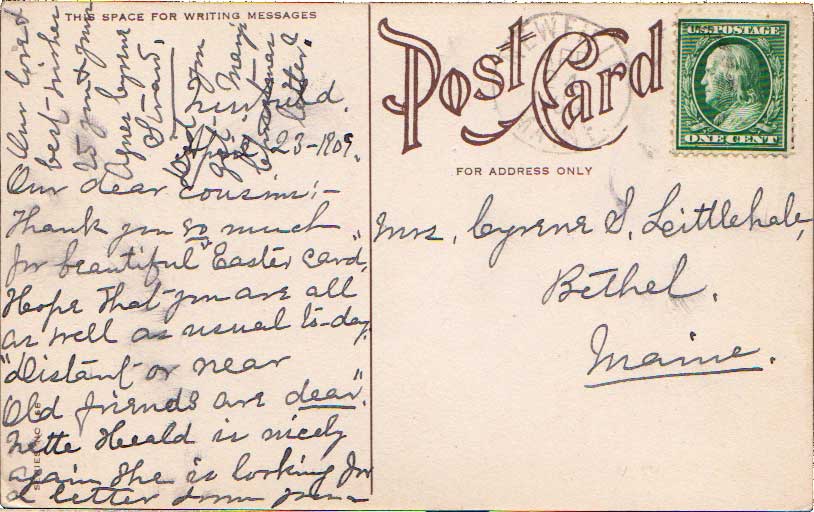 THIS SPACE FOR WRITING MESSAGES
Newfield.
April 23-1909.
Our dear cousins:-
Thank you so much
for beautiful "Easter card",
Hope that you are all
as well as usual to-day.
"Distant or near
Old friends are dear".
Nette Heald is nicely
again she is looking for
a letter from you-
Our love &
best wishes
to you & yours
Agnes Cyrene
Straw.
letter.
Post Card
FOR ADDRESS ONLY
U.S. POSTAGE
ONE CENT
Mrs. Cyrene S. Littlehale,
Bethel.
Maine.